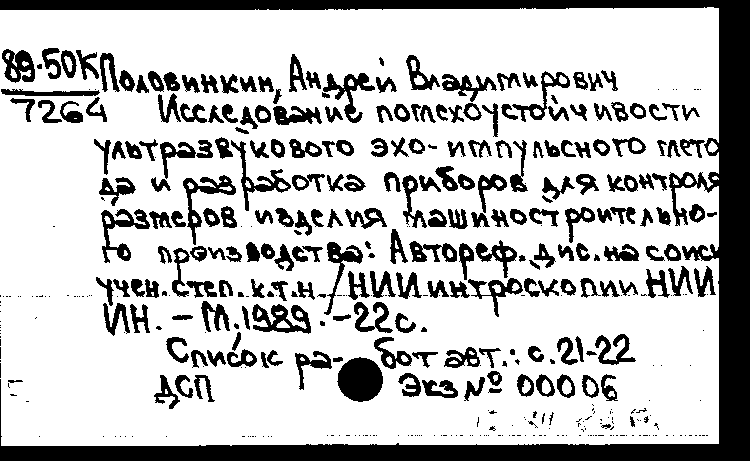 89-50К Половинкин, Андрей Владимирович
7264 Исследование помехоустойчивости
ультразвукового эхо-импульсного мето
да и разработка приборов для контроля
размеров изделия машиностроительно-
го производства: Автореф. дис. на соиск
учен. степ. к.т.н. / НИИ интроскопии НИИ
ИН. – М. 1989. – 22 с.
Список ра- бот авт.: с. 21-22
ДСП Экз № 00006